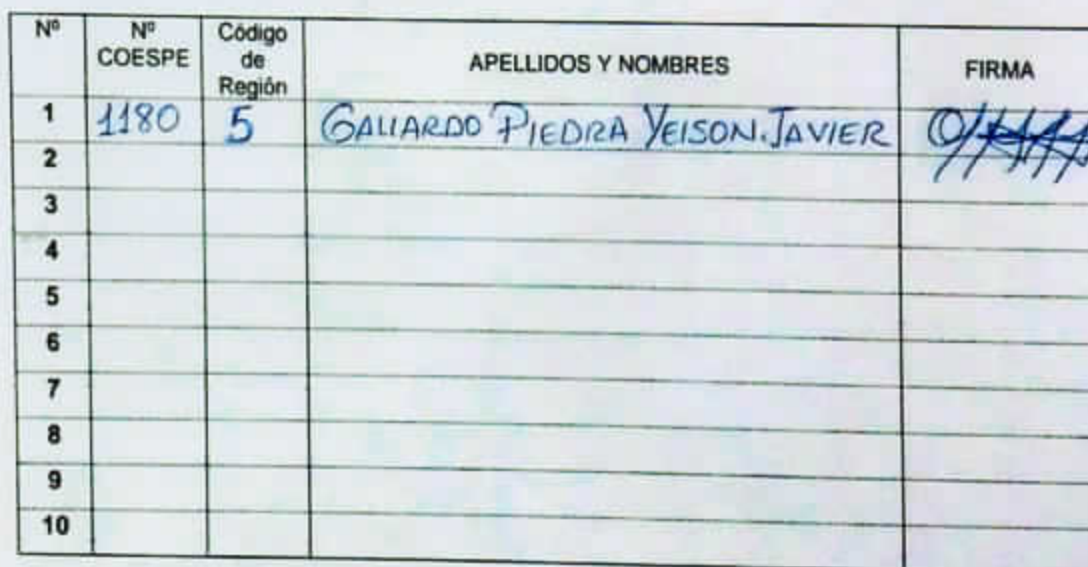 Nº Nº COESPE Código de Región APELLIDOS Y NOMBRES FIRMA
1 1180 5 GALLARDO PIEDRA YEISON JAVIER
2
3
4
5
6
7
8
9
10